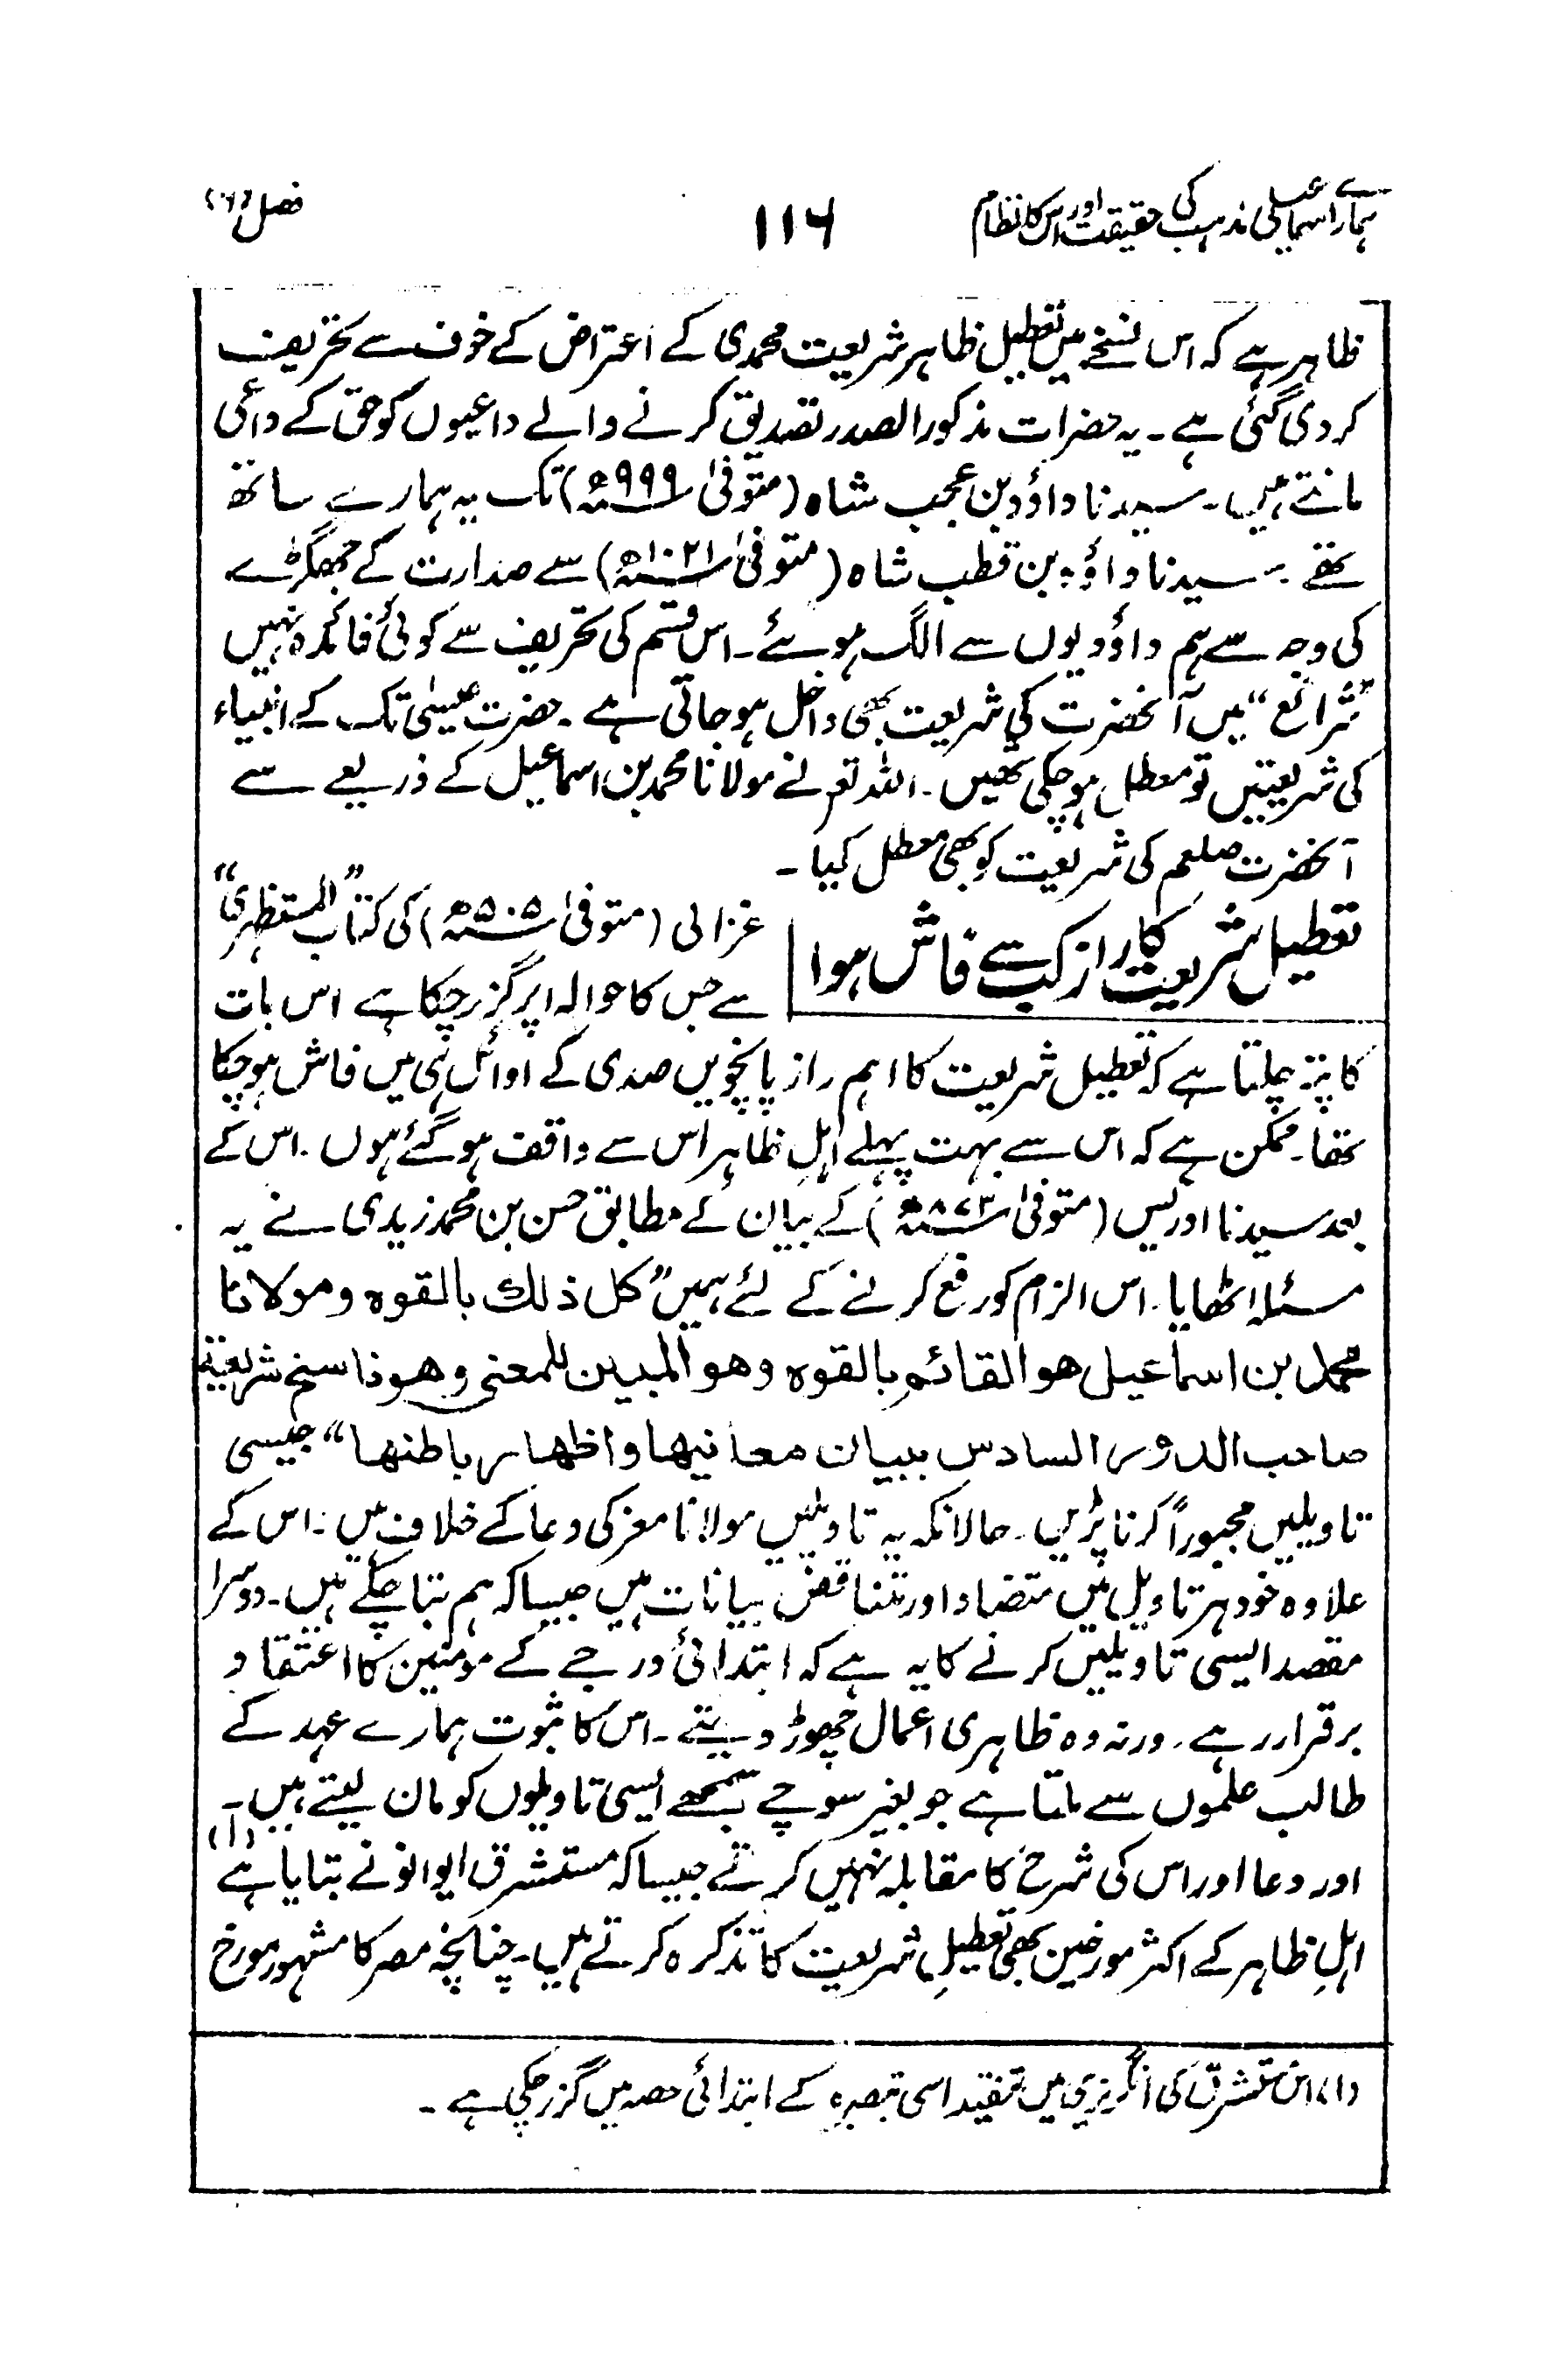 ہمارے اسماعیلی مذہب کی حقیقت اور اس کا نظام
۱۱۶
فصل
ظاہر ہے کہ اس نسخے میں تعطیل ظاہر شریعت محمدی کے اعتراض کے خوف سے تحریف
کر دی گئی ہے ۔ یہ حضرات مذکور الصدر تصدیق کرنے والے داعیوں کو حق کے داعی
مانتے ہیں ۔ سیدنا داؤد بن عجب شاہ (متوفیٰ ۹۹۹ھ) تک یہ ہمارے ساتھ
تھے ۔ سیدنا داؤد بن قطب شاہ (متوفیٰ ۱۰۲۱ھ) سے صدارت کے جھگڑے
کی وجہ سے ہم داؤدیوں سے الگ ہوئے ۔ اس قسم کی تحریف سے کوئی فائدہ نہیں
”شرائع“ میں آنحضرت کی شریعت بھی داخل ہو جاتی ہے ۔ حضرت عیسیٰ تک کے انبیاء
کی شریعتیں تو معطل ہو چکی تھیں ۔ اللہ تعم نے مولانا محمد بن اسماعیل کے ذریعے سے
آنحضرت صلعم کی شریعت کو بھی معطل کیا ۔
تعطیل شریعت کا راز کب سے فاش ہوا
غزالی (متوفیٰ ۵۰۵ھ) کی کتاب ”المستظہری“
سے جس کا حوالہ اپر گزر چکا ہے اس بات
کا پتہ چلتا ہے کہ تعطیل شریعت کا اہم راز پانچویں صدی کے اوائل ہی میں فاش ہو چکا
تھا ۔ ممکن ہے کہ اس سے بہت پہلے اہلِ ظاہر اس سے واقف ہو گئے ہوں ۔ اس کے
بعد سیدنا ادریس (متوفیٰ ۸۷۳ھ) کے بیان کے مطابق حسن بن محمد زیدی نے یہ
مسئلہ اٹھایا ۔ اس الزام کو رفع کرنے کے لئے ہمیں ”کل ذلك بالقوہ و مولانا
محمد بن اسماعیل ھو القائم بالقوہ وھو المبین للمعنی وھو ناسخ شریعۃ
صاحب الدور السادس ببیان معانیھا و اظھار باطنھا“ جیسی
تاویلیں مجبوراً کرنا پڑیں ۔ حالانکہ یہ تاویلیں مولانا معز کی دعا کے خلاف ہیں ۔ اس کے
علاوہ خود ہر تاویل میں متضاد اور متناقض بیانات ہیں جیسا کہ ہم بتا چکے ہیں ۔ دوسرا
مقصد ایسی تاویلیں کرنے کا یہ ہے کہ ابتدائی درجے کے مومنین کا اعتقاد
برقرار رہے ۔ ورنہ وہ ظاہری اعمال چھوڑ دیتے ۔ اس کا ثبوت ہمارے عہد کے
طالب علموں سے ملتا ہے جو بغیر سوچے سمجھے ایسی تاویلوں کو مان لیتے ہیں ۔
اور دعا اور اس کی شرح کا مقابلہ نہیں کرتے جیسا کہ مستشرق ایوانو نے بتایا ہے (۱)
اہلِ ظاہر کے اکثر مورخین بھی تعطیلِ شریعت کا تذکرہ کرتے ہیں ۔ چنانچہ مصر کا مشہور مورخ
(۱) اس مستشرق کی انگریزی میں تنقید اسی تبصرہ کے ابتدائی حصہ میں گزر چکی ہے ۔